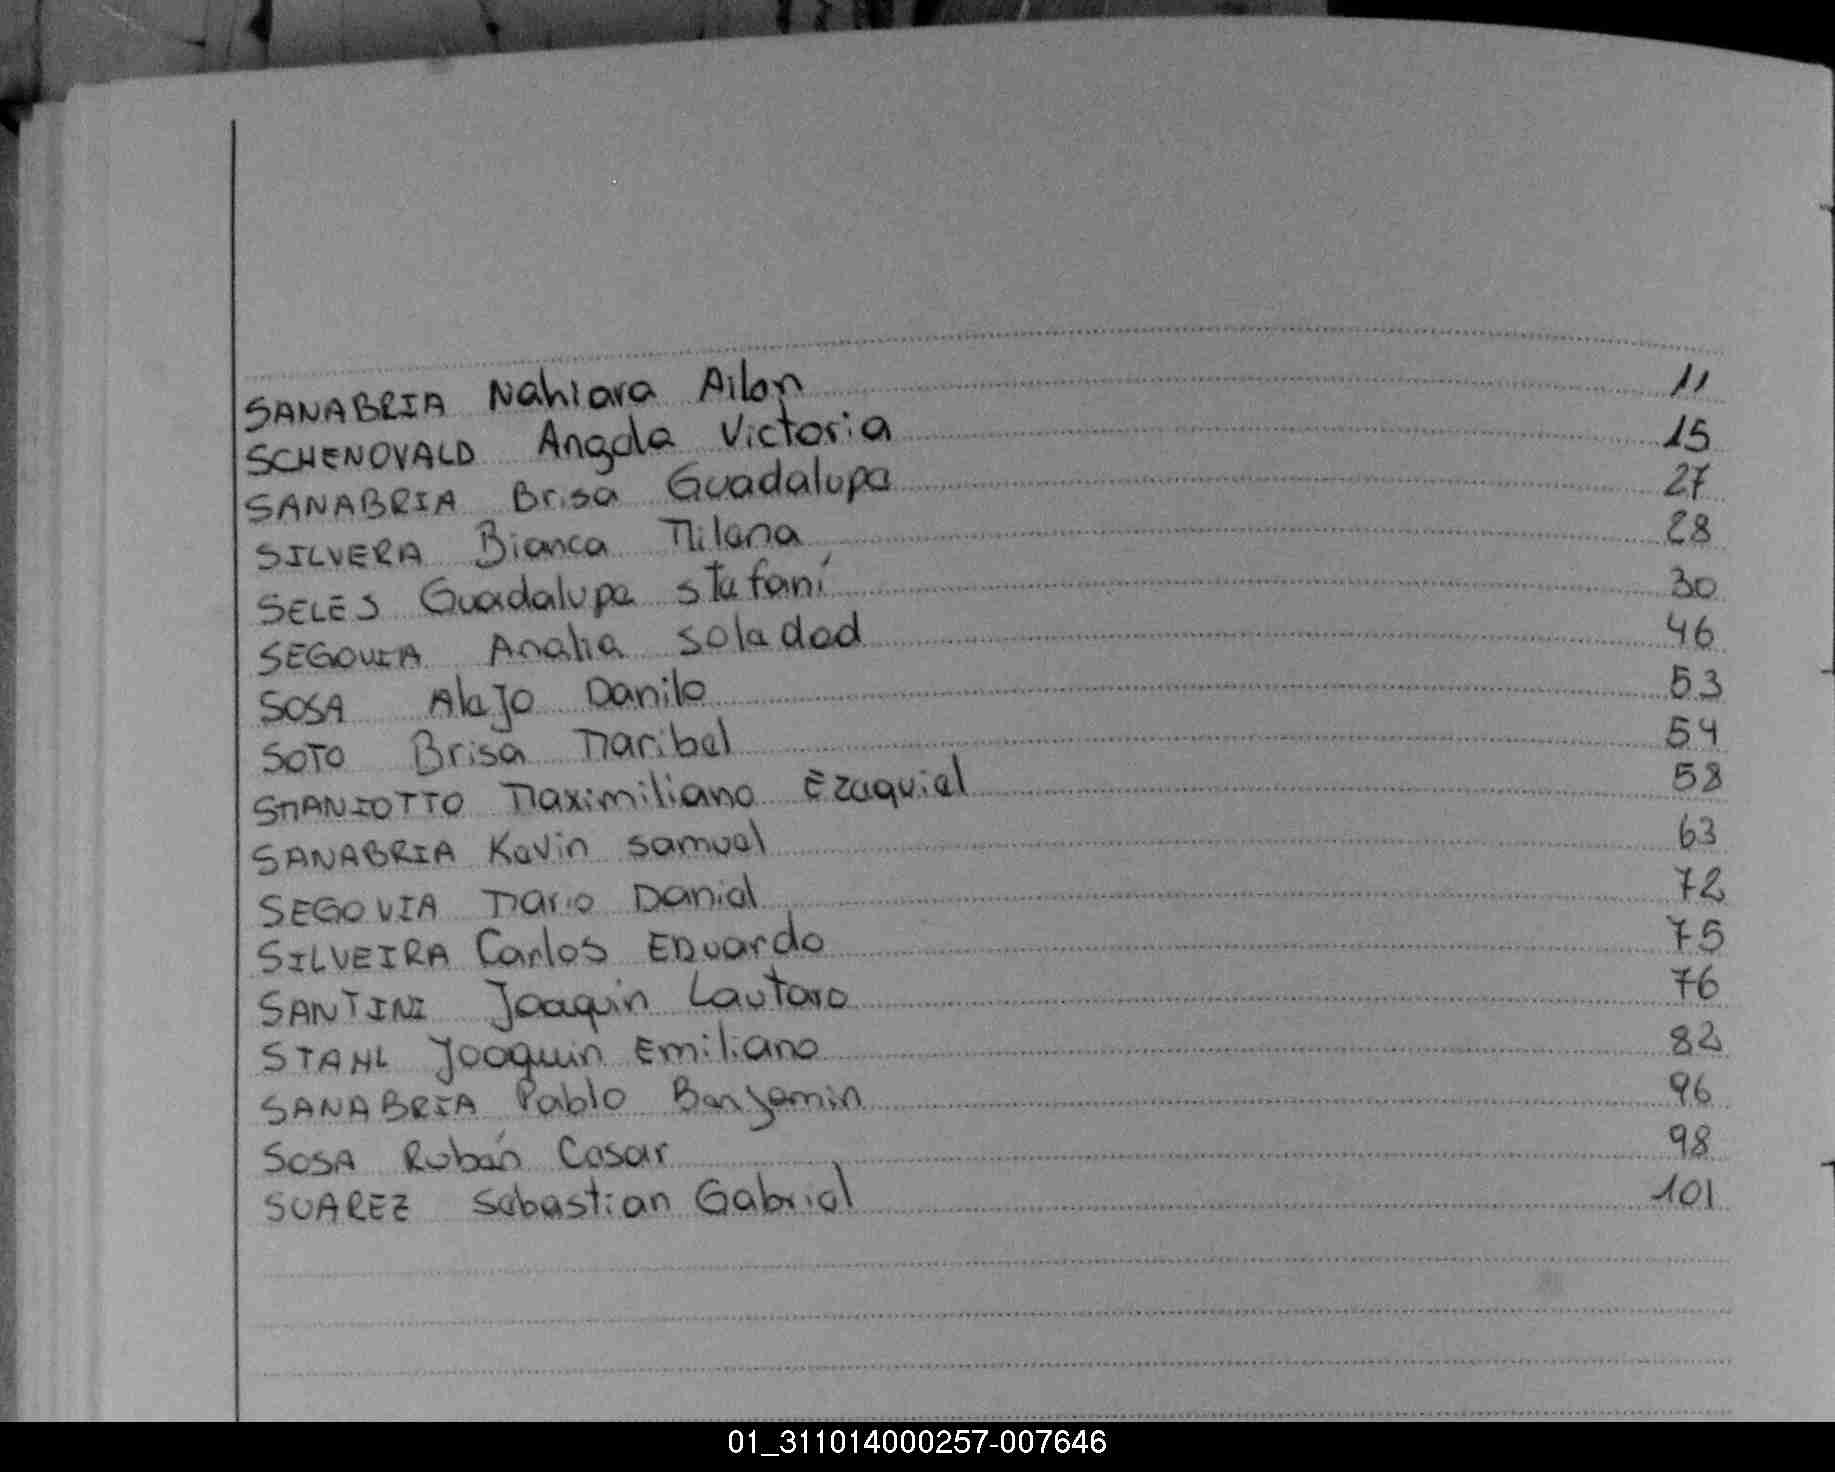 SANABRIA Nahiara Ailen 11
SCHENOVALD Angela Victoria 15
SANABRIA Brisa Guadalupe 27
SILVERA Bianca Milena 28
SELES Guadalupe Stefaní 30
SEGOVIA Analia Soledad 46
SOSA Alejo Danilo 53
SOTO Brisa Maribel 54
SMANIOTTO Maximiliano Ezequiel 58
SANABRIA Kevin Samuel 63
SEGOVIA Mario Daniel 72
SILVEIRA Carlos EDuardo 75
SANTINI Joaquin Lautaro 76
STAHL Joaquin Emiliano 82
SANABRIA Pablo Benjamin 96
SOSA Rubén Cesar 98
SUAREZ Sebastian Gabriel 101
01_311014000257-007646